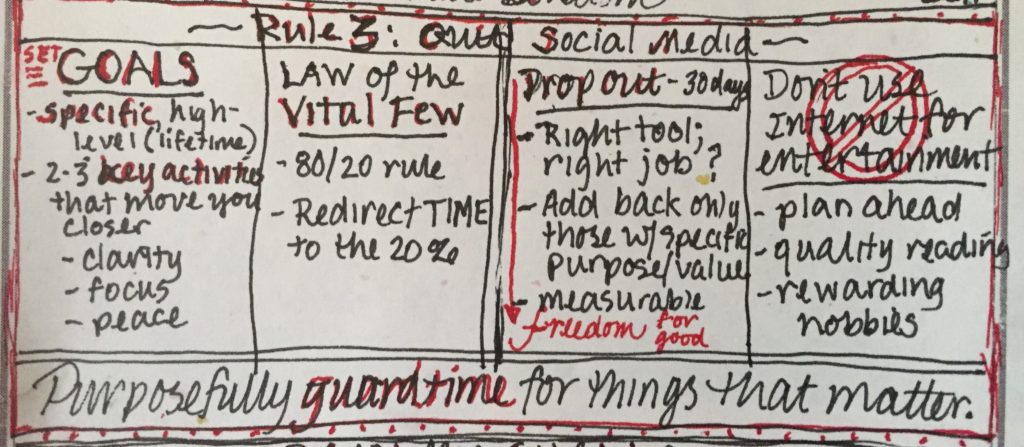 ~ Rule 3: Quit Social Media ~
SET
GOALS
- specific, high-
level (lifetime)
- 2-3 key activities
that move you
closer
- clarity
- focus
- peace
LAW of the
Vital Few
- 80/20 rule
- Redirect TIME
to the 20%
Drop out - 30 days
- Right tool;
right job?
- Add back only
those w/ specific
purpose/value
- measurable
freedom for
good
Don't use
Internet for
entertainment
- plan ahead
- quality reading
- rewarding
hobbies
Purposefully guard time for things that matter.